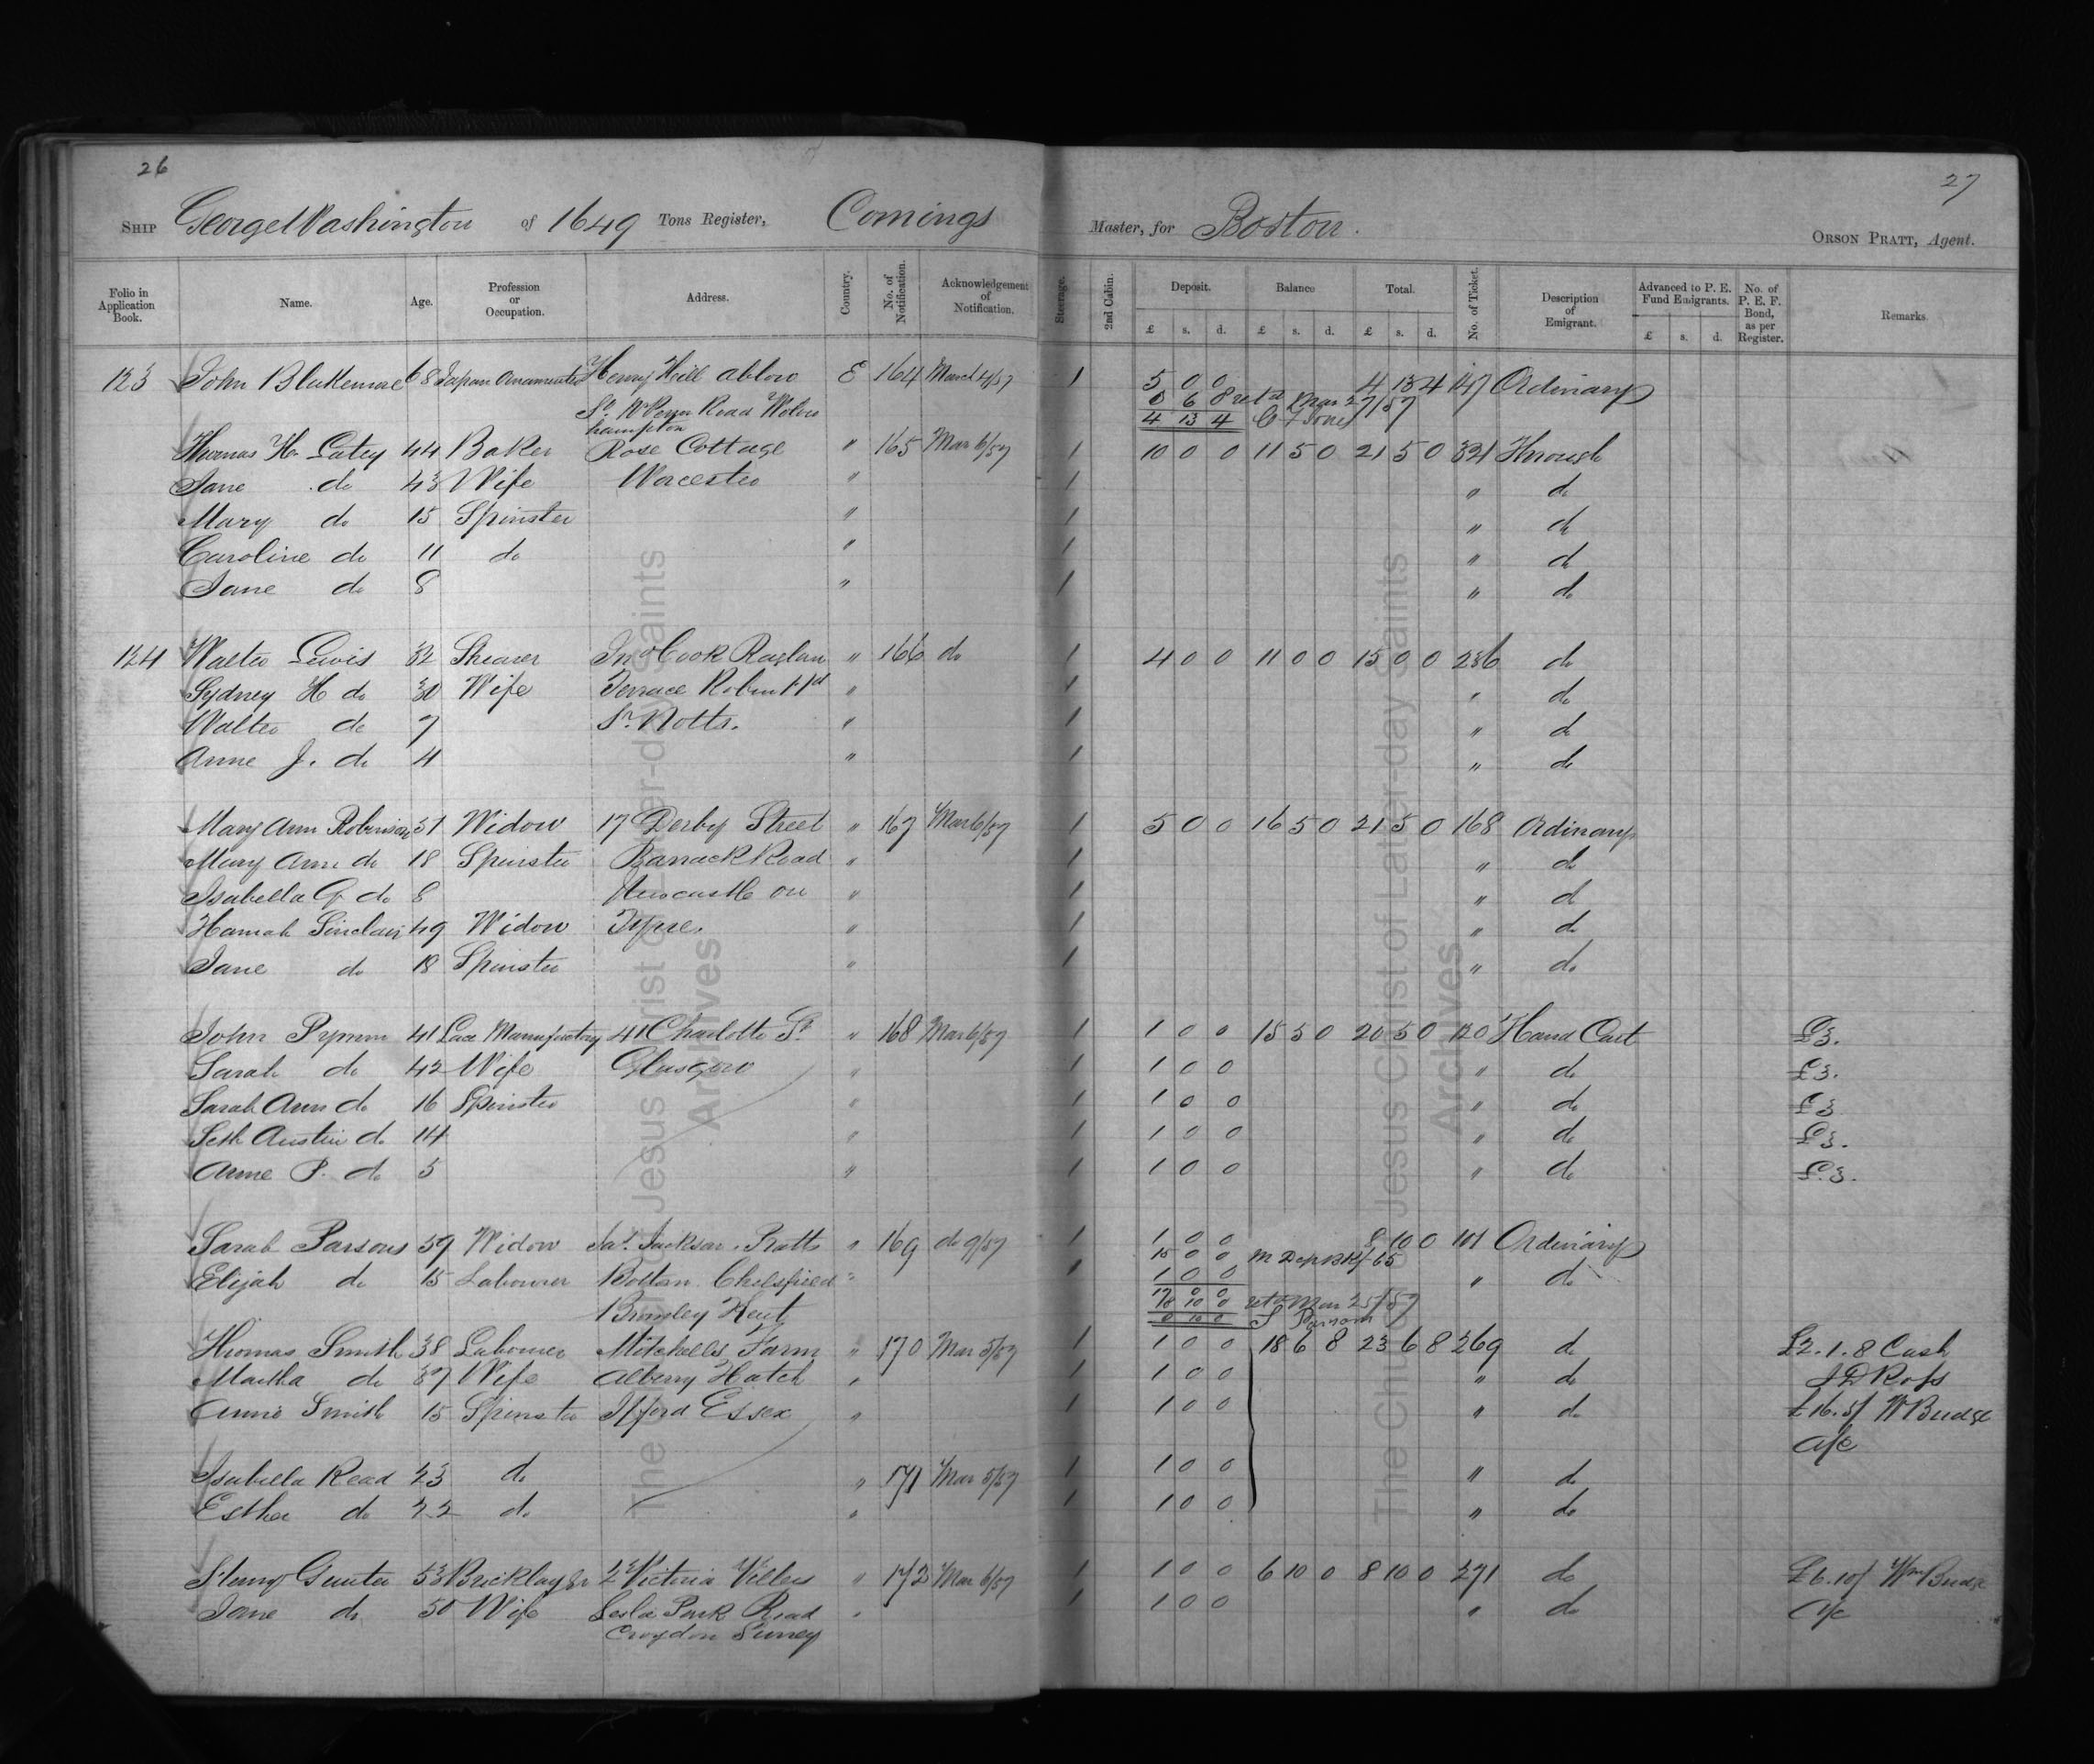 26
27
SHIP George Washington of 1649 Tons Register, Comings Master, for Boston.
ORSON PRATT, Agent.
Folio in Application Book. Name. Age. Profession or Occupation. Address. Country. No. of Notification. Acknowledgement of Notification. Steerage. 2nd Cabin. Deposit. Balance Total. No. of Ticket. Description of Emigrant. Advanced to P. E. Fund Emigrants. No. of P. E. F. Bond, as per Register. Remarks.
£ s. d. £ s. d. £ s. d. £ s. d.
123 John Blakemore 68 Japan Ornamenter Henry Hill ablow E 164 March 4/57 1 5 0 0 4 13 4 147 Ordinary
St. Road Wolver 0 6 8 retd Mar 27/57
hampton 4 13 4 Jones
Thomas H. Latey 44 Baker Rose Cottage " 165 Mar 6/57 1 10 0 0 11 5 0 21 5 0 321 Through
Jane do 43 Wife Worcester " 1 " do
Mary do 15 Spinster " 1 " do
Caroline do 11 do " 1 " do
Jane do 8 " 1 " do
124 Walter Lewis 32 Shearer Jno Cook Raglan " 166 do 1 4 0 0 11 0 0 15 0 0 236 do
Sydney H do 30 Wife Terrace Robin Hd " 1 " do
Walter do 7 St. Notts. " 1 " do
Anne J. do 4 " 1 " do
Mary Ann Robinson 51 Widow 17 Derby Street " 167 Mar 6/57 1 5 0 0 16 5 0 21 5 0 168 Ordinary
Mary Ann do 18 Spinster Barrack Road " 1 " do
Isabella G do 8 Newcastle on " 1 " d
Hannah Sinclair 49 Widow Tyne. " 1 " do
Jane do 18 Spinster " 1 " do
John Pymm 41 Lace Manufactory 41 Charlotte St. " 168 Mar 6/57 1 1 0 0 15 5 0 20 5 0 120 Hand Cart £3.
Sarah do 42 Wife Glasgow " 1 1 0 0 " do £3.
Sarah Ann do 16 Spinster " 1 1 0 0 " do £3
Seth Austin do 14 " 1 1 0 0 " do £3.
Anne P. do 5 " 1 1 0 0 " do £.3.
Sarah Parsons 57 Widow Jas. Jackson, Pratts " 169 do 9/57 1 1 0 0 8 10 0 101 Ordinary
15 0 0 M Deposit 65
Elijah do 15 Labourer Bottom Chelsfield " 1 1 0 0 " do
17 0 0
Bromley Kent 10 0 retd Mar 25/57
0 10 0 S Parsons
Thomas Smith 38 Labourer Mitchells Farm " 170 Mar 5/57 1 1 0 0 18 6 8 23 6 8 269 do £2.1.8 Cash
Martha do 37 Wife Albery Hatch " 1 1 0 0 " do J D Ross
Annie Smith 15 Spinster Ilford Essex " 1 1 0 0 " do £16.5/ W Budge
a/c
Isabella Read 23 do " 171 Mar 5/57 1 1 0 0 " do
Esther do 22 do " 1 1 0 0 " do
Henry Gunter 53 Bricklayer 2 Victoria Villas " 172 Mar 6/57 1 1 0 0 6 10 0 8 10 0 271 do £6.10/ Wm Budge
Jane do 50 Wife Park Road " 1 1 0 0 " do a/c
Croydon Surrey
The Church of Jesus Christ of Latter-day Saints
Archives
The Church of Jesus Christ of Latter-day Saints
Archives